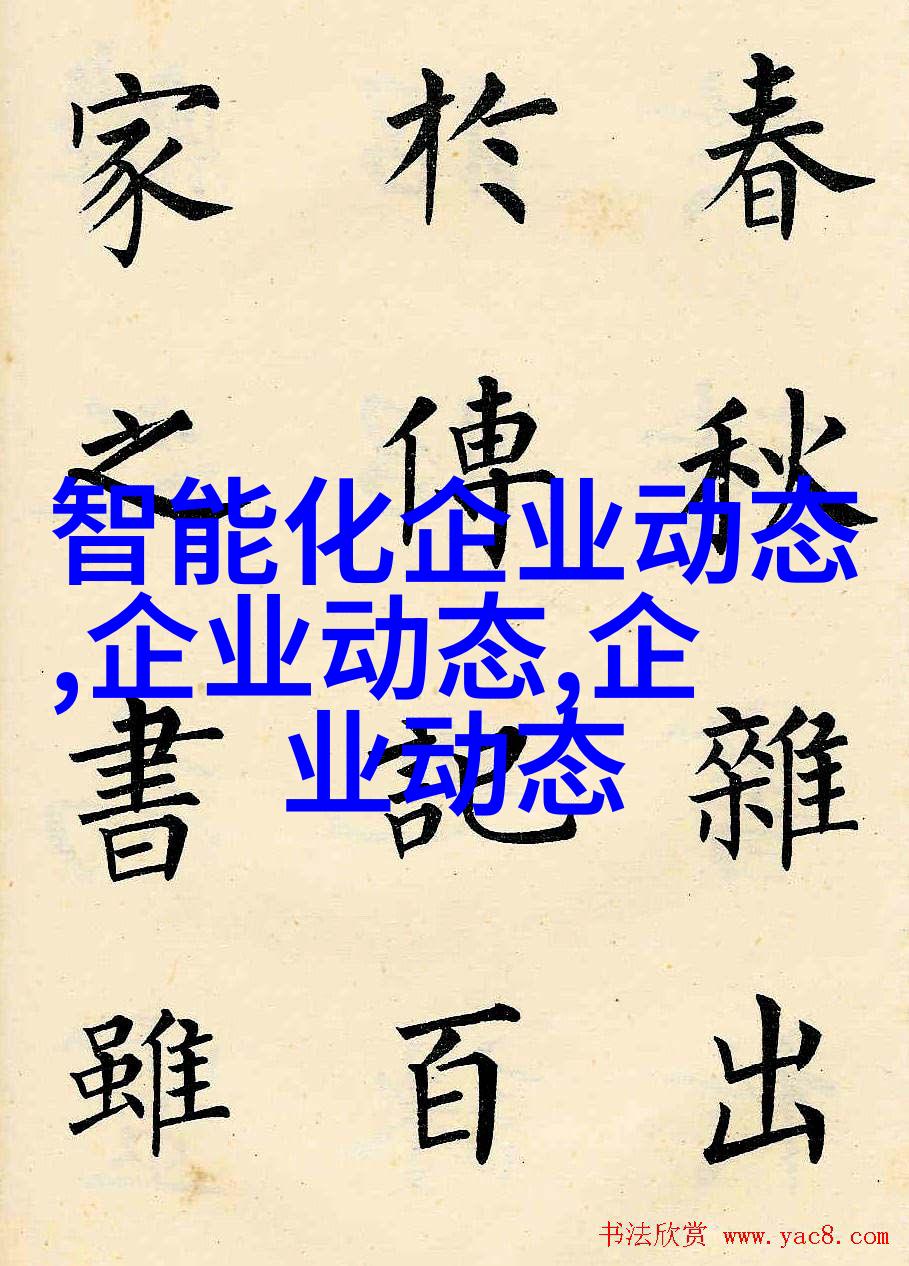 春秋雜出
於傳記百
家之書雖
智能化企业动态
,企业动态,企
业动态
书法欣赏 www.yac8.com